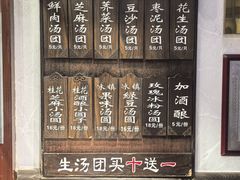 鲜肉汤团
5元/只
芝麻汤团
5元/只
荠菜汤团
5元/只
豆沙汤团
5元/只
枣泥汤团
5元/只
花生汤团
5元/只
桂花芝麻小汤圆
18元/份
桂花酒酿小圆
16元/份
冰镇果味汤圆
18元/份
冰镇绿豆汤圆
16元/份
玫瑰冰粉汤圆
18元/份
加酒酿
5元/份
生汤团买十送一